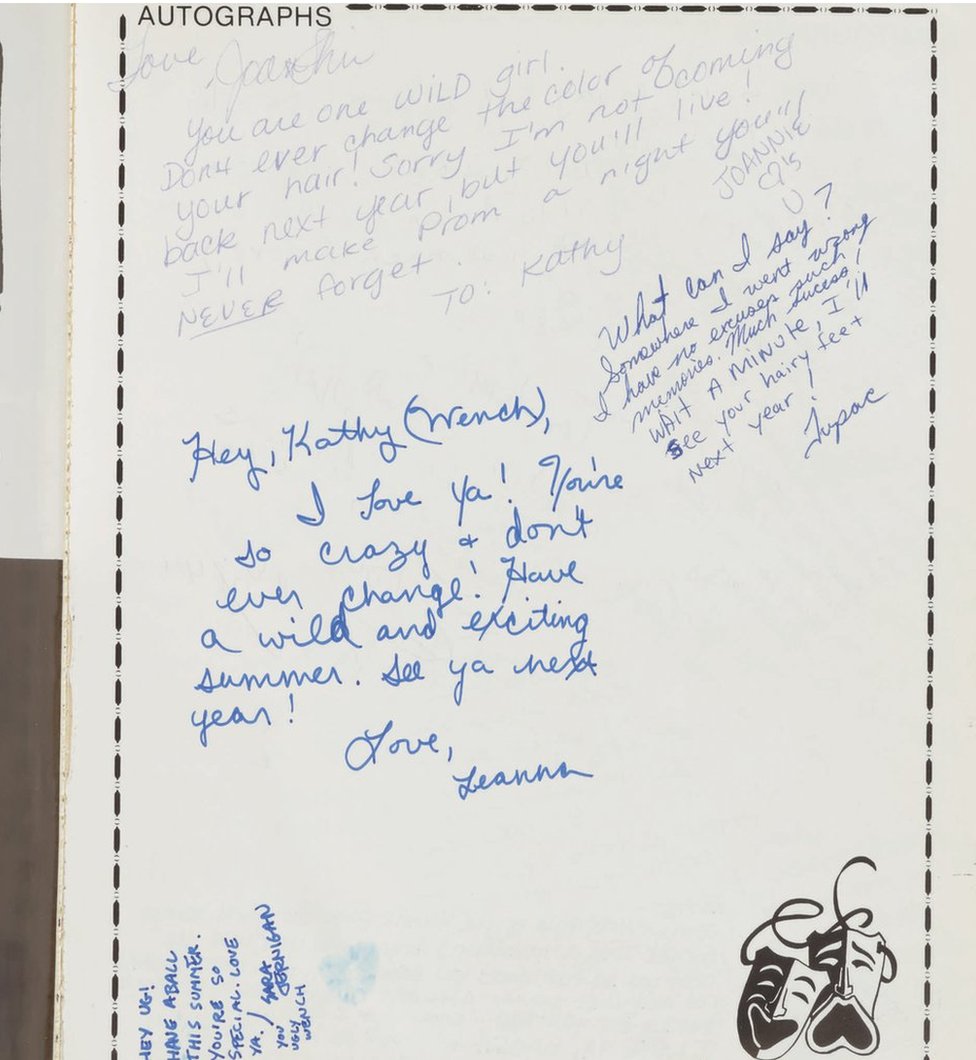 AUTOGRAPHS
Love
You are one WILD girl.
Don't ever change the color of
your hair! Sorry I'm not coming
back next year, but you'll live!
I'll make Prom a night you'll
NEVER forget.
To: Kathy
JOANNIE
U
What can I say?
Somewhere I went wrong
I have no excuses such
memories. Much Sucess!
WAIT A MINUTE, I'll
See your hairy feet
next year!
Tupac
Hey, Kathy (Wench),
I love ya! You're
so crazy & don't
ever change! Have
a wild and exciting
summer. See ya next
year!
Love,
Leanna
HEY UG!
HAVE A BALL
THIS SUMMER.
YOU'RE SO
SPECIAL. LOVE
YA. / SARA
JERNIGAN
YOU
UGLY
WENCH